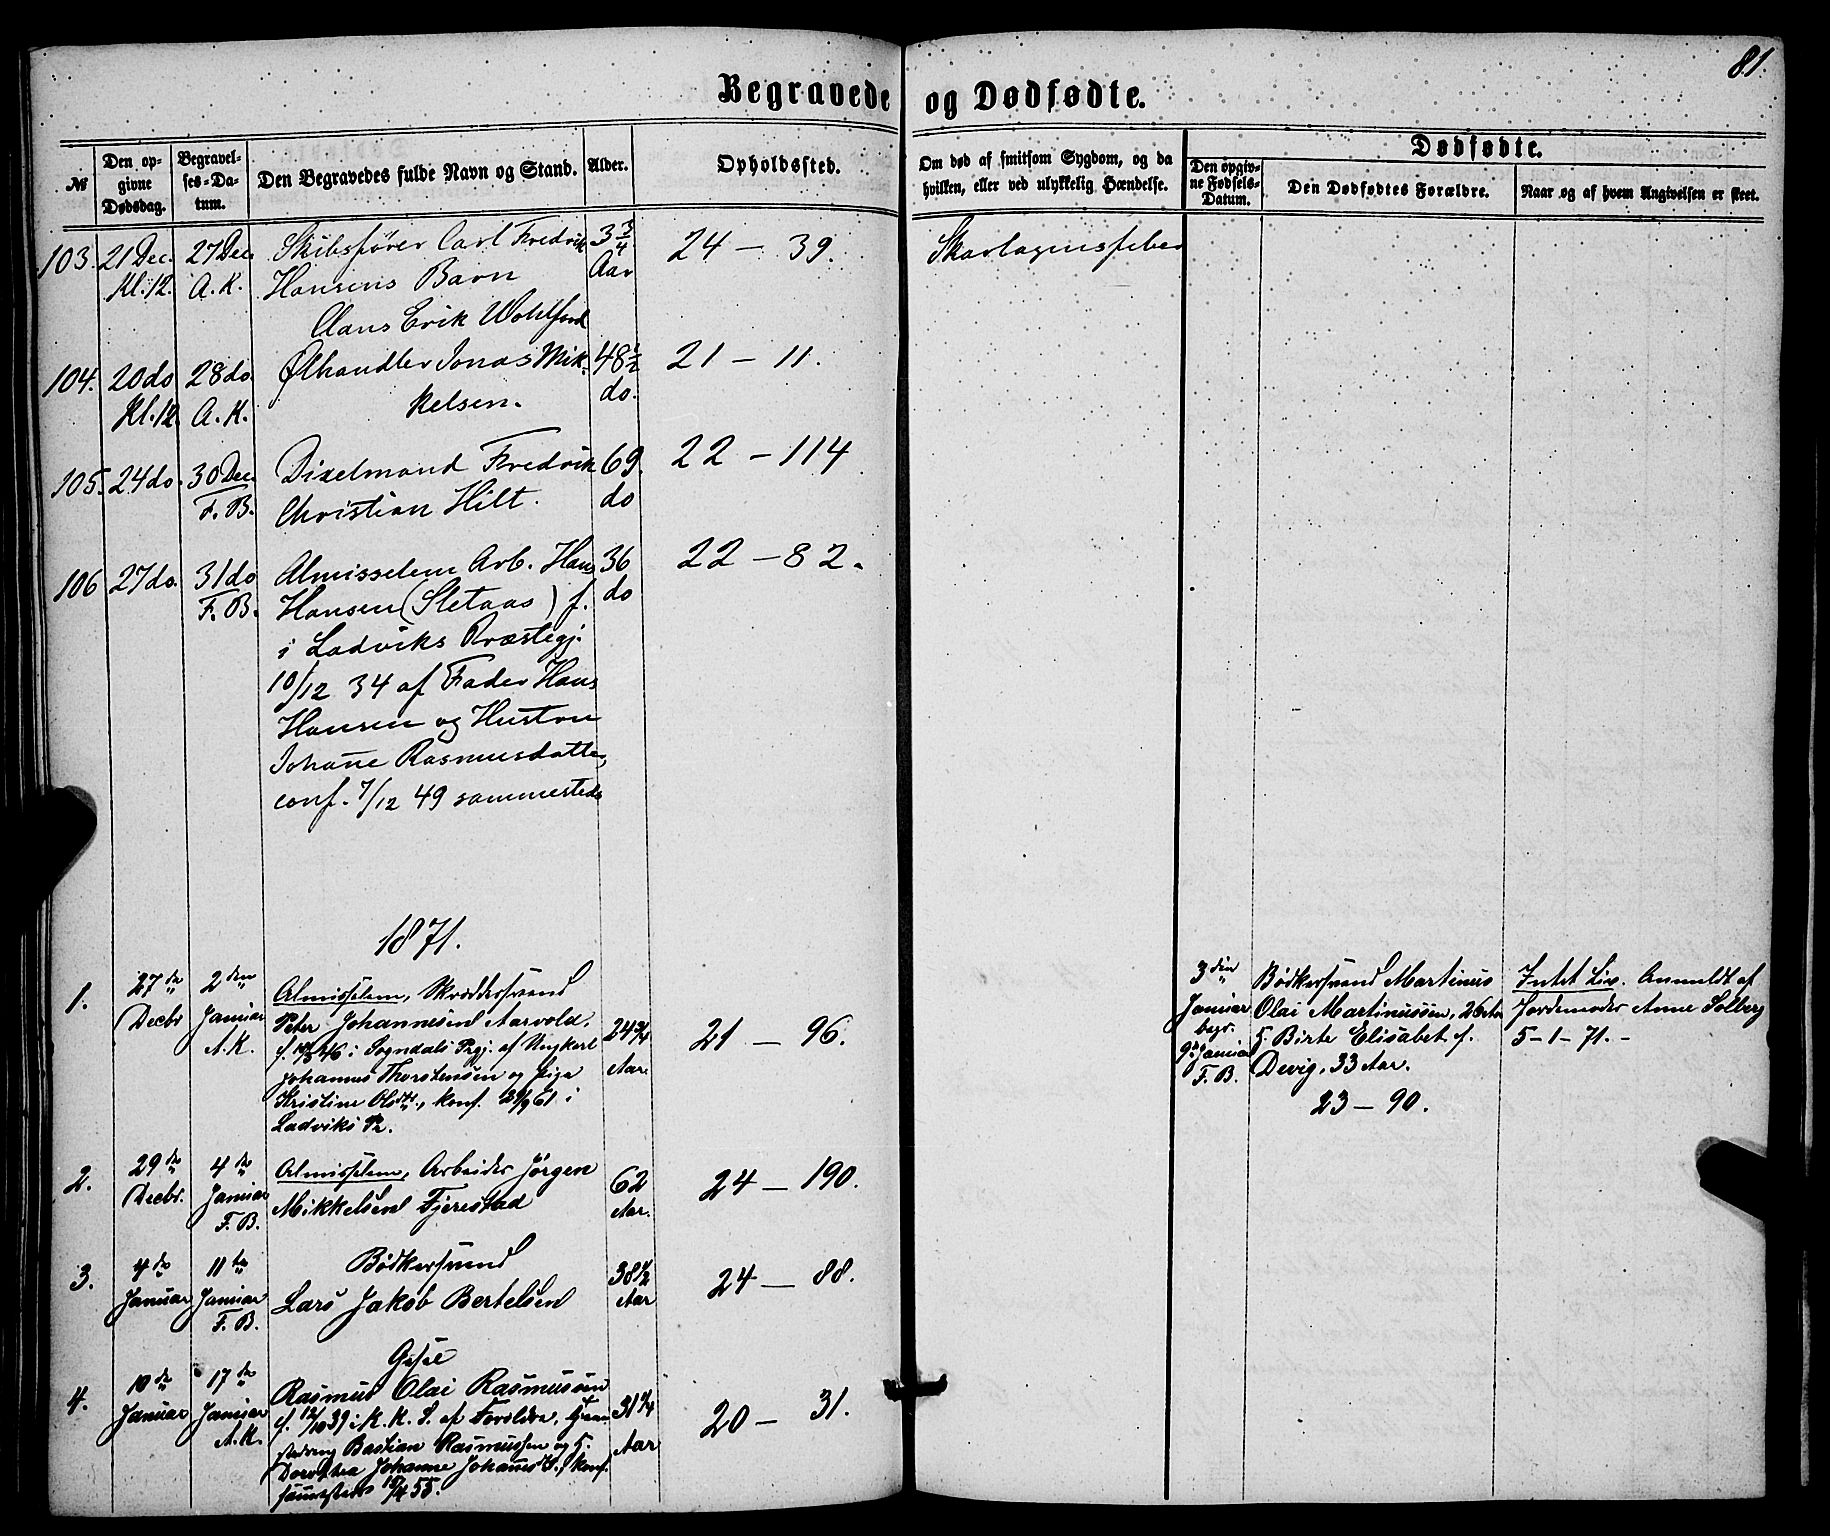 81.
Begravede og Dødfødte.
№
Den opgivne Dødsdag.
Begravelses-Datum.
Den Begravedes fulde Navn og Stand.
Alder.
Opholdssted.
Om død af smitsom Sygdom, og da
hvilken, eller ved ulykkelig Hændelse.
Dødfødte.
Den opgivne Fødsels-Datum.
Den Dødfødtes Forældre.
Naar og af hvem Angivelsen er skeet.
103. 21 Dec. 27 Dec. Skibsfører Carl Fredrik 3 3/4 24 — 39. Skarlagensfeber
Kl. 12. A. K. Hansens Barn Aar
Claus Erik Wohlford
104. 20 do 28 do Ølhandler Jonas Mik- 48 1/2 21 — 11.
Kl. 12. A. K. kelsen. do.
105. 24 do. 30 Dec. Dixelmand Fredrik 69. 22 — 114
F. B. Christian Hilt. do
106 27 do. 31 do Almisselem Arb. Hans 36 22 — 82.
F. B. Hansen (Sletaas) f. do
i Ladviks Præstegj.
10/12 34 af Fader Hans
Hansen og Hustru
Johane Rasmusdatter,
conf. 7/12 49 sammesteds
1871.
1. 27de 2den Almisselem, Skræddersvend
Decbr Januar Peter Johannesen Aarvold,
A. K. 24 3/4 Aar. 21 — 96.
i Sogndals Prgj. af Ungkarl
Johannes Thorstensen og Pige
Kristine Olsdtr., konf. 29/9 61 i
Ladviks Pr.
3die Bødkersvend Martinus Intet Liv. Anmeldt af
Januar Olai Martinussen, 26 Aar Jordemoder Anne Solberg
begr. H. Birte Elisabet f. 5-1-71. -
9de Januar Devig, 33 Aar.
F. B. 23 — 90.
2. 29de 4de Almisselem, Arbeider Jørgen 62 24 — 190.
Decbr. Januar Mikkelsen Fjerestad Aar.
F. B.
3. 4de 11te Bødkersvend 38 1/2 24 — 88.
Januar Januar Lars Jakob Bertelsen Aar
F. B.
4. 10de 17de Rasmus Olai Rasmussen 31 1/4 20 — 31.
Januar Januar f. 12/10 39 i K. K. S. af Forældre, Aar
A. K. Bastian Rasmussen og H.
Dorothea Johanne Johannesd., konf.
sammesteds 15/4 55.